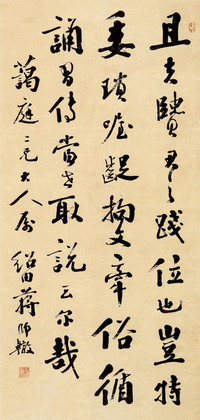 且夫賢君之踐位也豈特
委瑣喔齪拘文牽俗循
誦習傳當世取說云尔哉
藹庭二兄大人屬 紹由蔣師轍